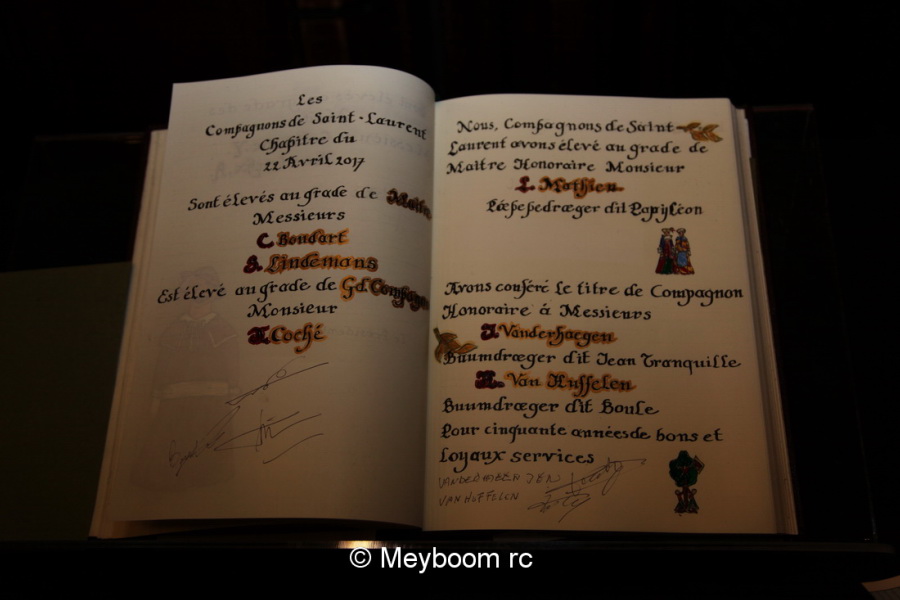 Les
Compagnons de Saint-Laurent
Chapitre du
22 Avril 2017
Sont élevés au grade de
Messieurs
C. Boudart
S. Lindemans
Est élevé au grade de Gd. Compagn
Monsieur
Coché
Nous, Compagnons de Saint-
Laurent avons élevé au grade de
Maître Honoraire Monsieur
L. Mathieu
Pæpedræger dit Papyléon
Avons conféré le titre de Compagnon
Honoraire à Messieurs
J. Vanderhaegen
Buumdræger dit Jean Tranquille
Van Huffelen
Buumdræger dit Boule
Pour cinquante années de bons et
loyaux services
VAN HUFFELEN
© Meyboom rc